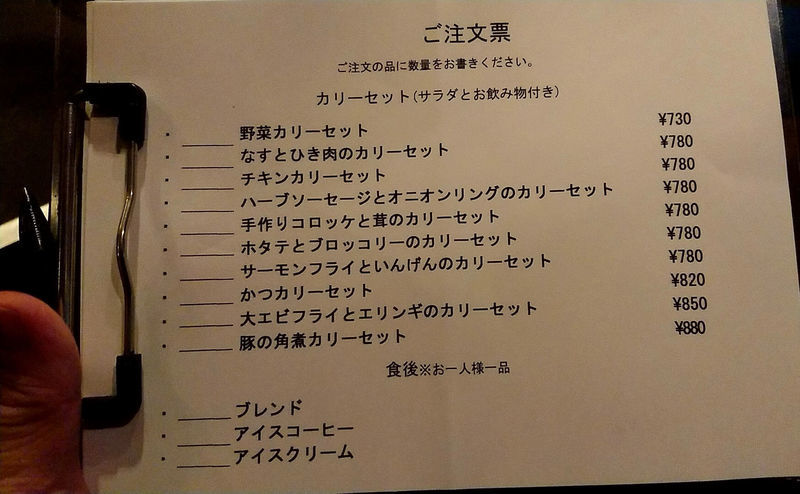 ご注文票
ご注文の品に数量をお書きください。
カリーセット(サラダとお飲み物付き)
・ _____ 野菜カリーセット ¥730
・ _____ なすとひき肉のカリーセット ¥780
・ _____ チキンカリーセット ¥780
・ _____ ハーブソーセージとオニオンリングのカリーセット ¥780
・ _____ 手作りコロッケと茸のカリーセット ¥780
・ _____ ホタテとブロッコリーのカリーセット ¥780
・ _____ サーモンフライといんげんのカリーセット ¥780
・ _____ かつカリーセット ¥820
・ _____ 大エビフライとエリンギのカリーセット ¥850
・ _____ 豚の角煮カリーセット ¥880
食後※お一人様一品
・ _____ ブレンド
・ _____ アイスコーヒー
・ _____ アイスクリーム